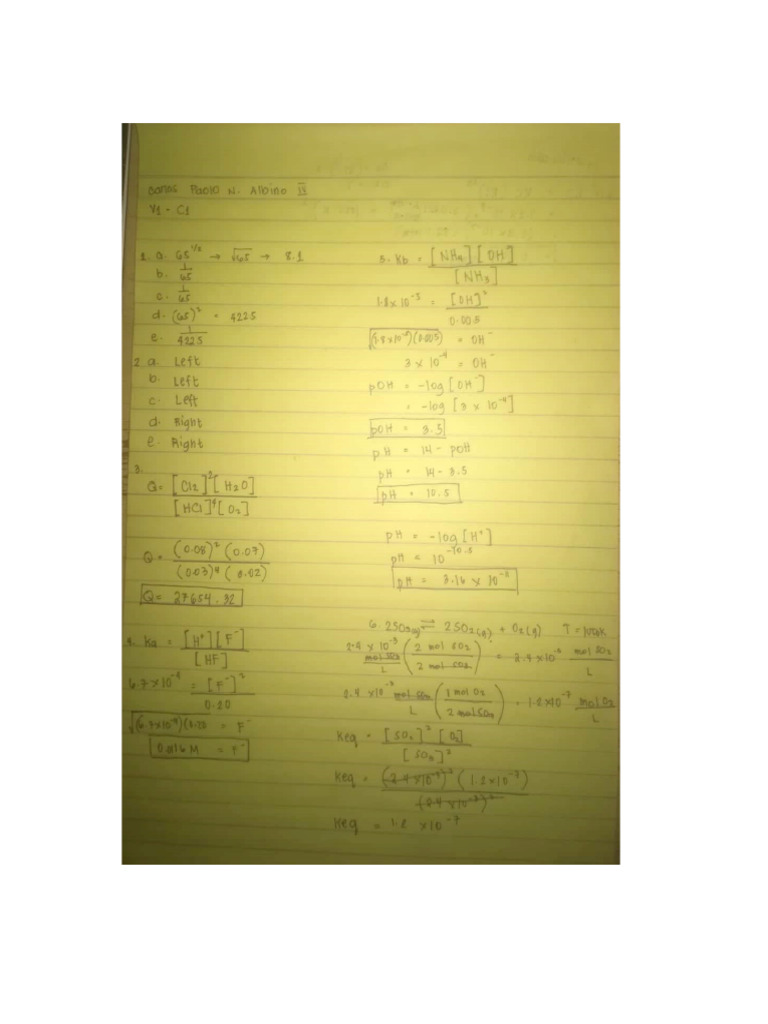 Paolo N. Albino IV
V1 - C1
1. a. 65^1/2 → √65 → 8.1
b. 1/65
c. 1/65
d. (65)² = 4225
e. 1/4225
2 a. Left
b. Left
c. Left
d. Right
e. Right
3.
Q= [Cl2]²[H2O] / [HCl]⁴[O2]
Q= (0.08)² (0.07) / (0.03)⁴ (0.02)
Q= 27654.32
4. Ka = [H⁺][F⁻] / [HF]
6.7×10⁻⁴ = [F⁻]² / 0.20
√(6.7×10⁻⁴)(0.20 = F⁻
0.016 M = F⁻
5. Kb = [NH4][OH] / [NH3]
1.8×10⁻⁵ = [OH]² / 0.005
√(1.8×10⁻⁵)(0.005) = OH⁻
3 × 10⁻⁴ = OH⁻
pOH = -log [OH⁻]
= -log [3 × 10⁻⁴]
pOH = 3.5
pH = 14 - pOH
pH = 14 - 3.5
pH = 10.5
pH = -log [H⁺]
pH = 10⁻¹⁰·⁵
pH = 3.16 × 10
6. 2SO3(g) ⇌ 2SO2(g) + O2(g) T =
2.4 × 10⁻³ mol SO3 / L (2 mol SO2 / 2 mol SO3) = 2.4×10 mol SO2 / L
2.4 ×10 mol SO3 / L (1 mol O2 / 2 mol SO3) = 1.2×10⁻⁷ mol O2 / L
Keq = [SO2]² [O2] / [SO3]²
Keq = (2.4×10 )² (1.2×10⁻⁷) / (2.4×10 )²
Keq = 1.2 ×10⁻⁷